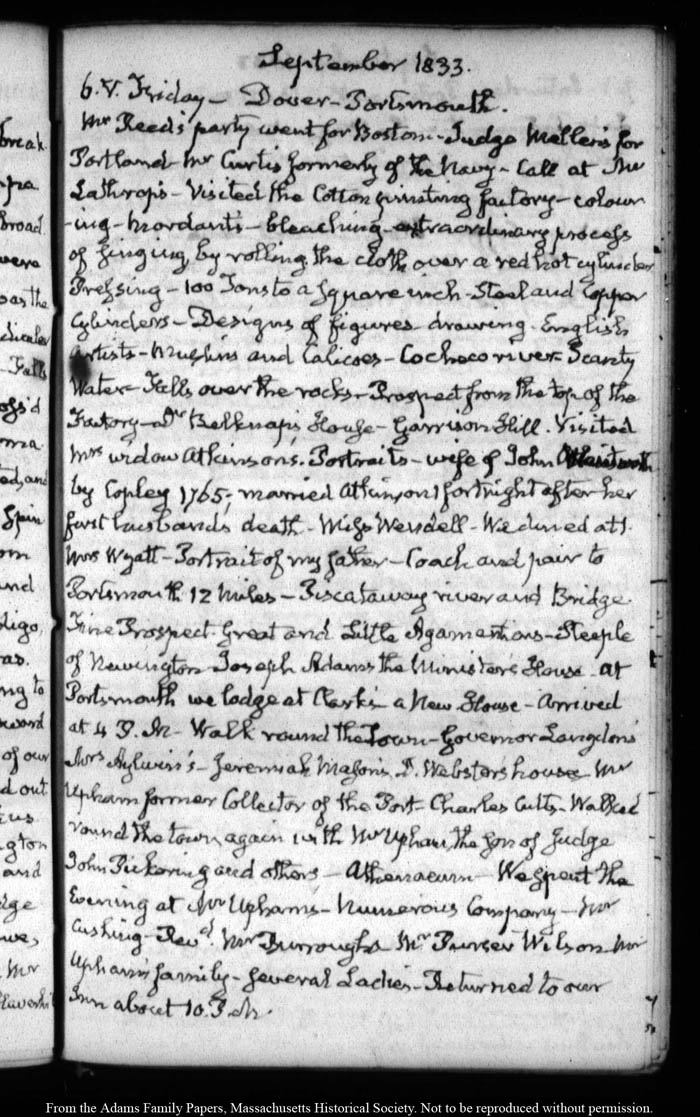 September 1833.
6. V. Friday — Dover — Portsmouth.
Mr Reed's party went for Boston — Judge Mellen's for
Portland — Mr Curtis formerly of the Navy — Call at Mr
Lathrop's — Visited the Cotton printing factory — colour
-ing — mordants — bleaching — extraordinary process
of singing, by rolling the cloth over a red hot cylinder
Pressing — 100 Tons to a square inch — Steel and Copper
Cylinders — Designs of figures — drawing. English
artists — Muslins and Calicoes — Cocheco river — Scanty
Water — Falls over the rocks — Prospect from the top of the
Factory — Dr Belknap's House — Garrison Hill. Visited
Mrs widow Atkinson's. Portraits — wife of John
by Copley 1765; married Atkinson 1 fortnight after her
first husband's death — Miss Wendell — We dined at 1.
Mrs Wyatt — Portrait of my father — Coach and pair to
Portsmouth 12 miles — Piscataway river and Bridge.
Fine Prospect. Great and Little Agamenticus — Steeple
of Newington Joseph Adams the Minister's House — at
Portsmouth we lodge at Clark's a New House — Arrived
at 4 P.M — Walk round the Town — Governor Langdon's
Mrs Aylwin's — Jeremiah Mason's, D. Webster's house Mr
Upham former Collector of the Port — Charles Cutts — Walked
round the town again with Mr Upham, the son of Judge
John Pickering and others — Athenaeum — We spent the
Evening at Mr Upham's — Numerous Company — Mr
Cushing — Revd. Mr Burroughs Mr Purser Wilson Mr
Upham's family — several Ladies — Returned to our
Inn about 10. P.M.
break
broad.
were
oas the
Falls
Spain
and
ng to
of our
d out
gton
and
Mr
From the Adams Family Papers, Massachusetts Historical Society. Not to be reproduced without permission.